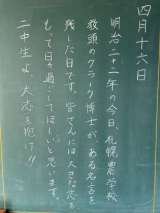 四月十六日
明治二十二年の今日、札幌農学校
教頭のクラーク博士がある名言を
残した日です。皆さんには大きな志を
もって日々過ごしてほしいと思います。
二中生よ、大志を抱け!!